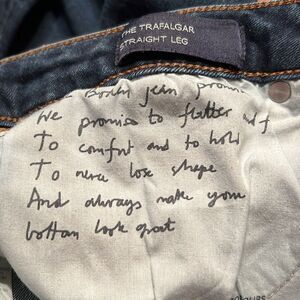 THE TRAFALGAR
STRAIGHT LEG
Boden jean promise
We promise to flatter and
To comfort and to hold
To never lose shape
And always make your
bottom look great